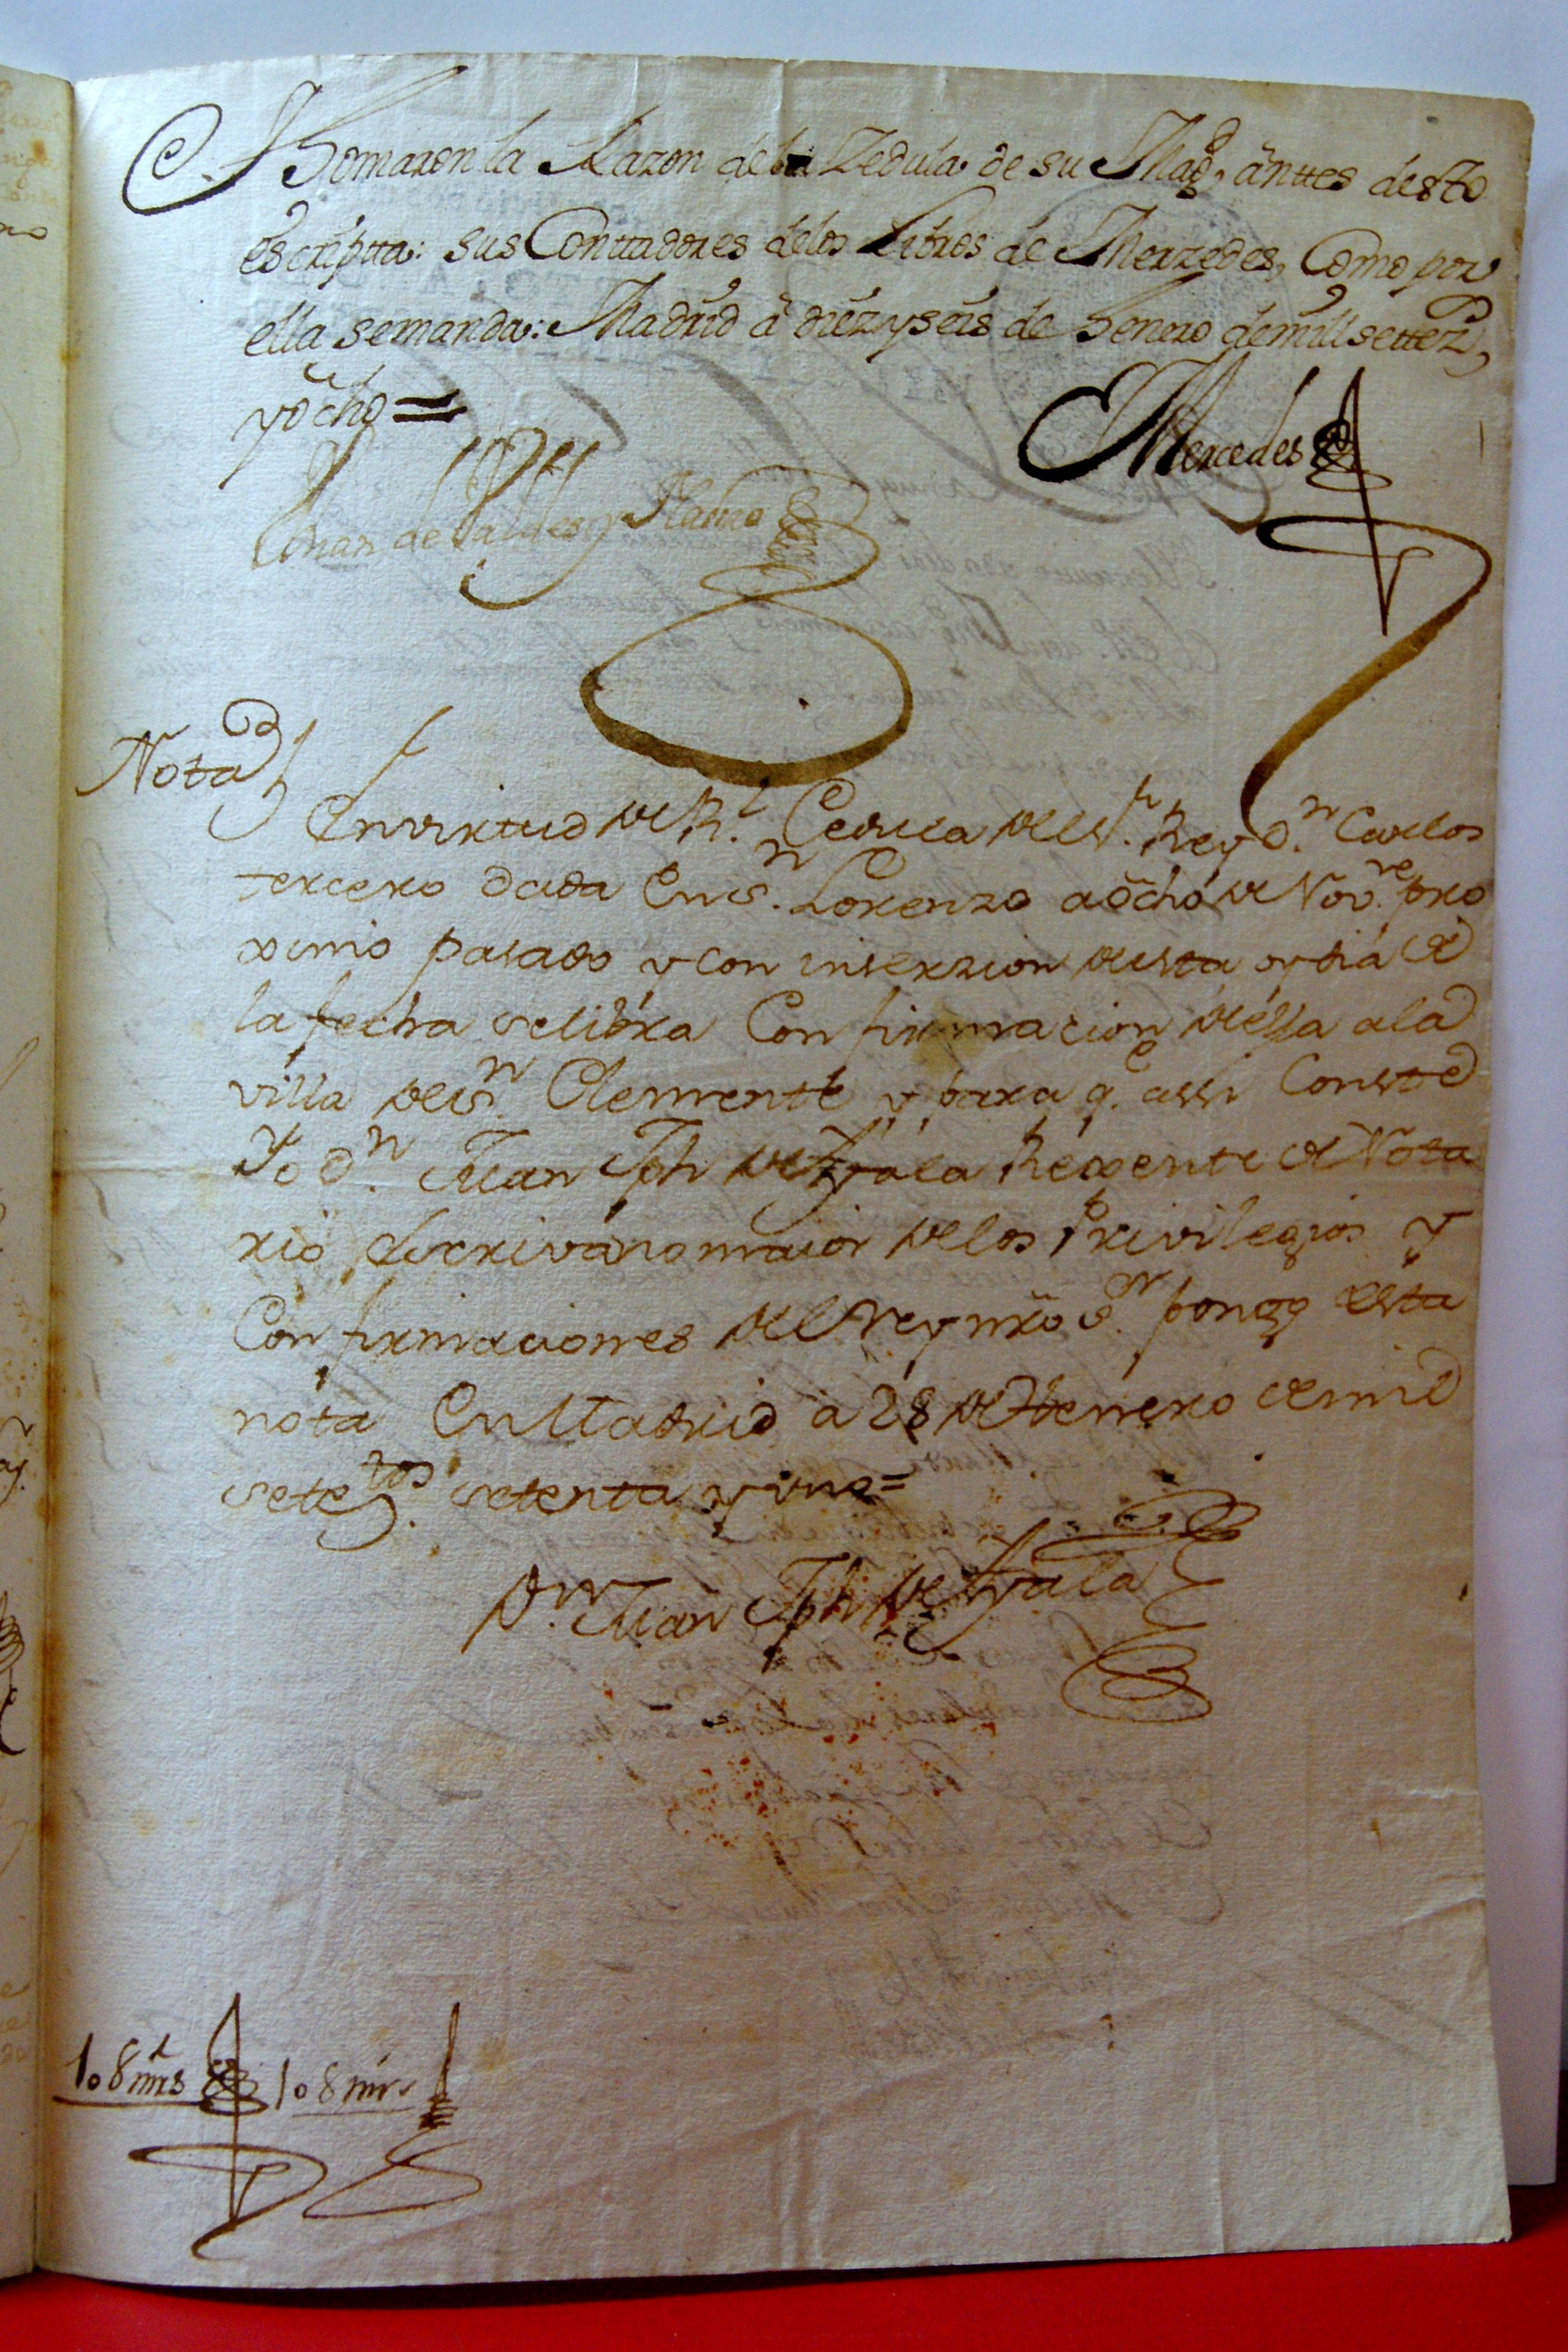 Tomaron la Razon de la Zedula de su Magd. ânttes desto
escriptta: sus Conttadores de los Libros de Merzedes, Como por
ella se manda: Madrid â diez y seis de Henero de mill settezs.
y ôcho=
Mercedes
Juan de Valdes y
Nota
En virtud de Rl. Cedula del Sr. Rey Dn. Carlos
tercero dada En Sn. Lorenzo a ôcho de Novre. pro
ximo pasado y con inserzion desta oy dia de
la fecha se libra Confirmacion della a la
villa de Sn. Clemente y para qe. assi Conste
Yo Dn. Juan Jph de Ayala Rexente de Nota
rio Escrivano maior de los Privilegios y
Confirmaciones del Rey nrõ Sr. pongo esta
nota En Madrid à 28 de Henero de mil
seteztos. setenta y uno=
Dn. Juan Jph de Ayala
108 mrs 108 mrs